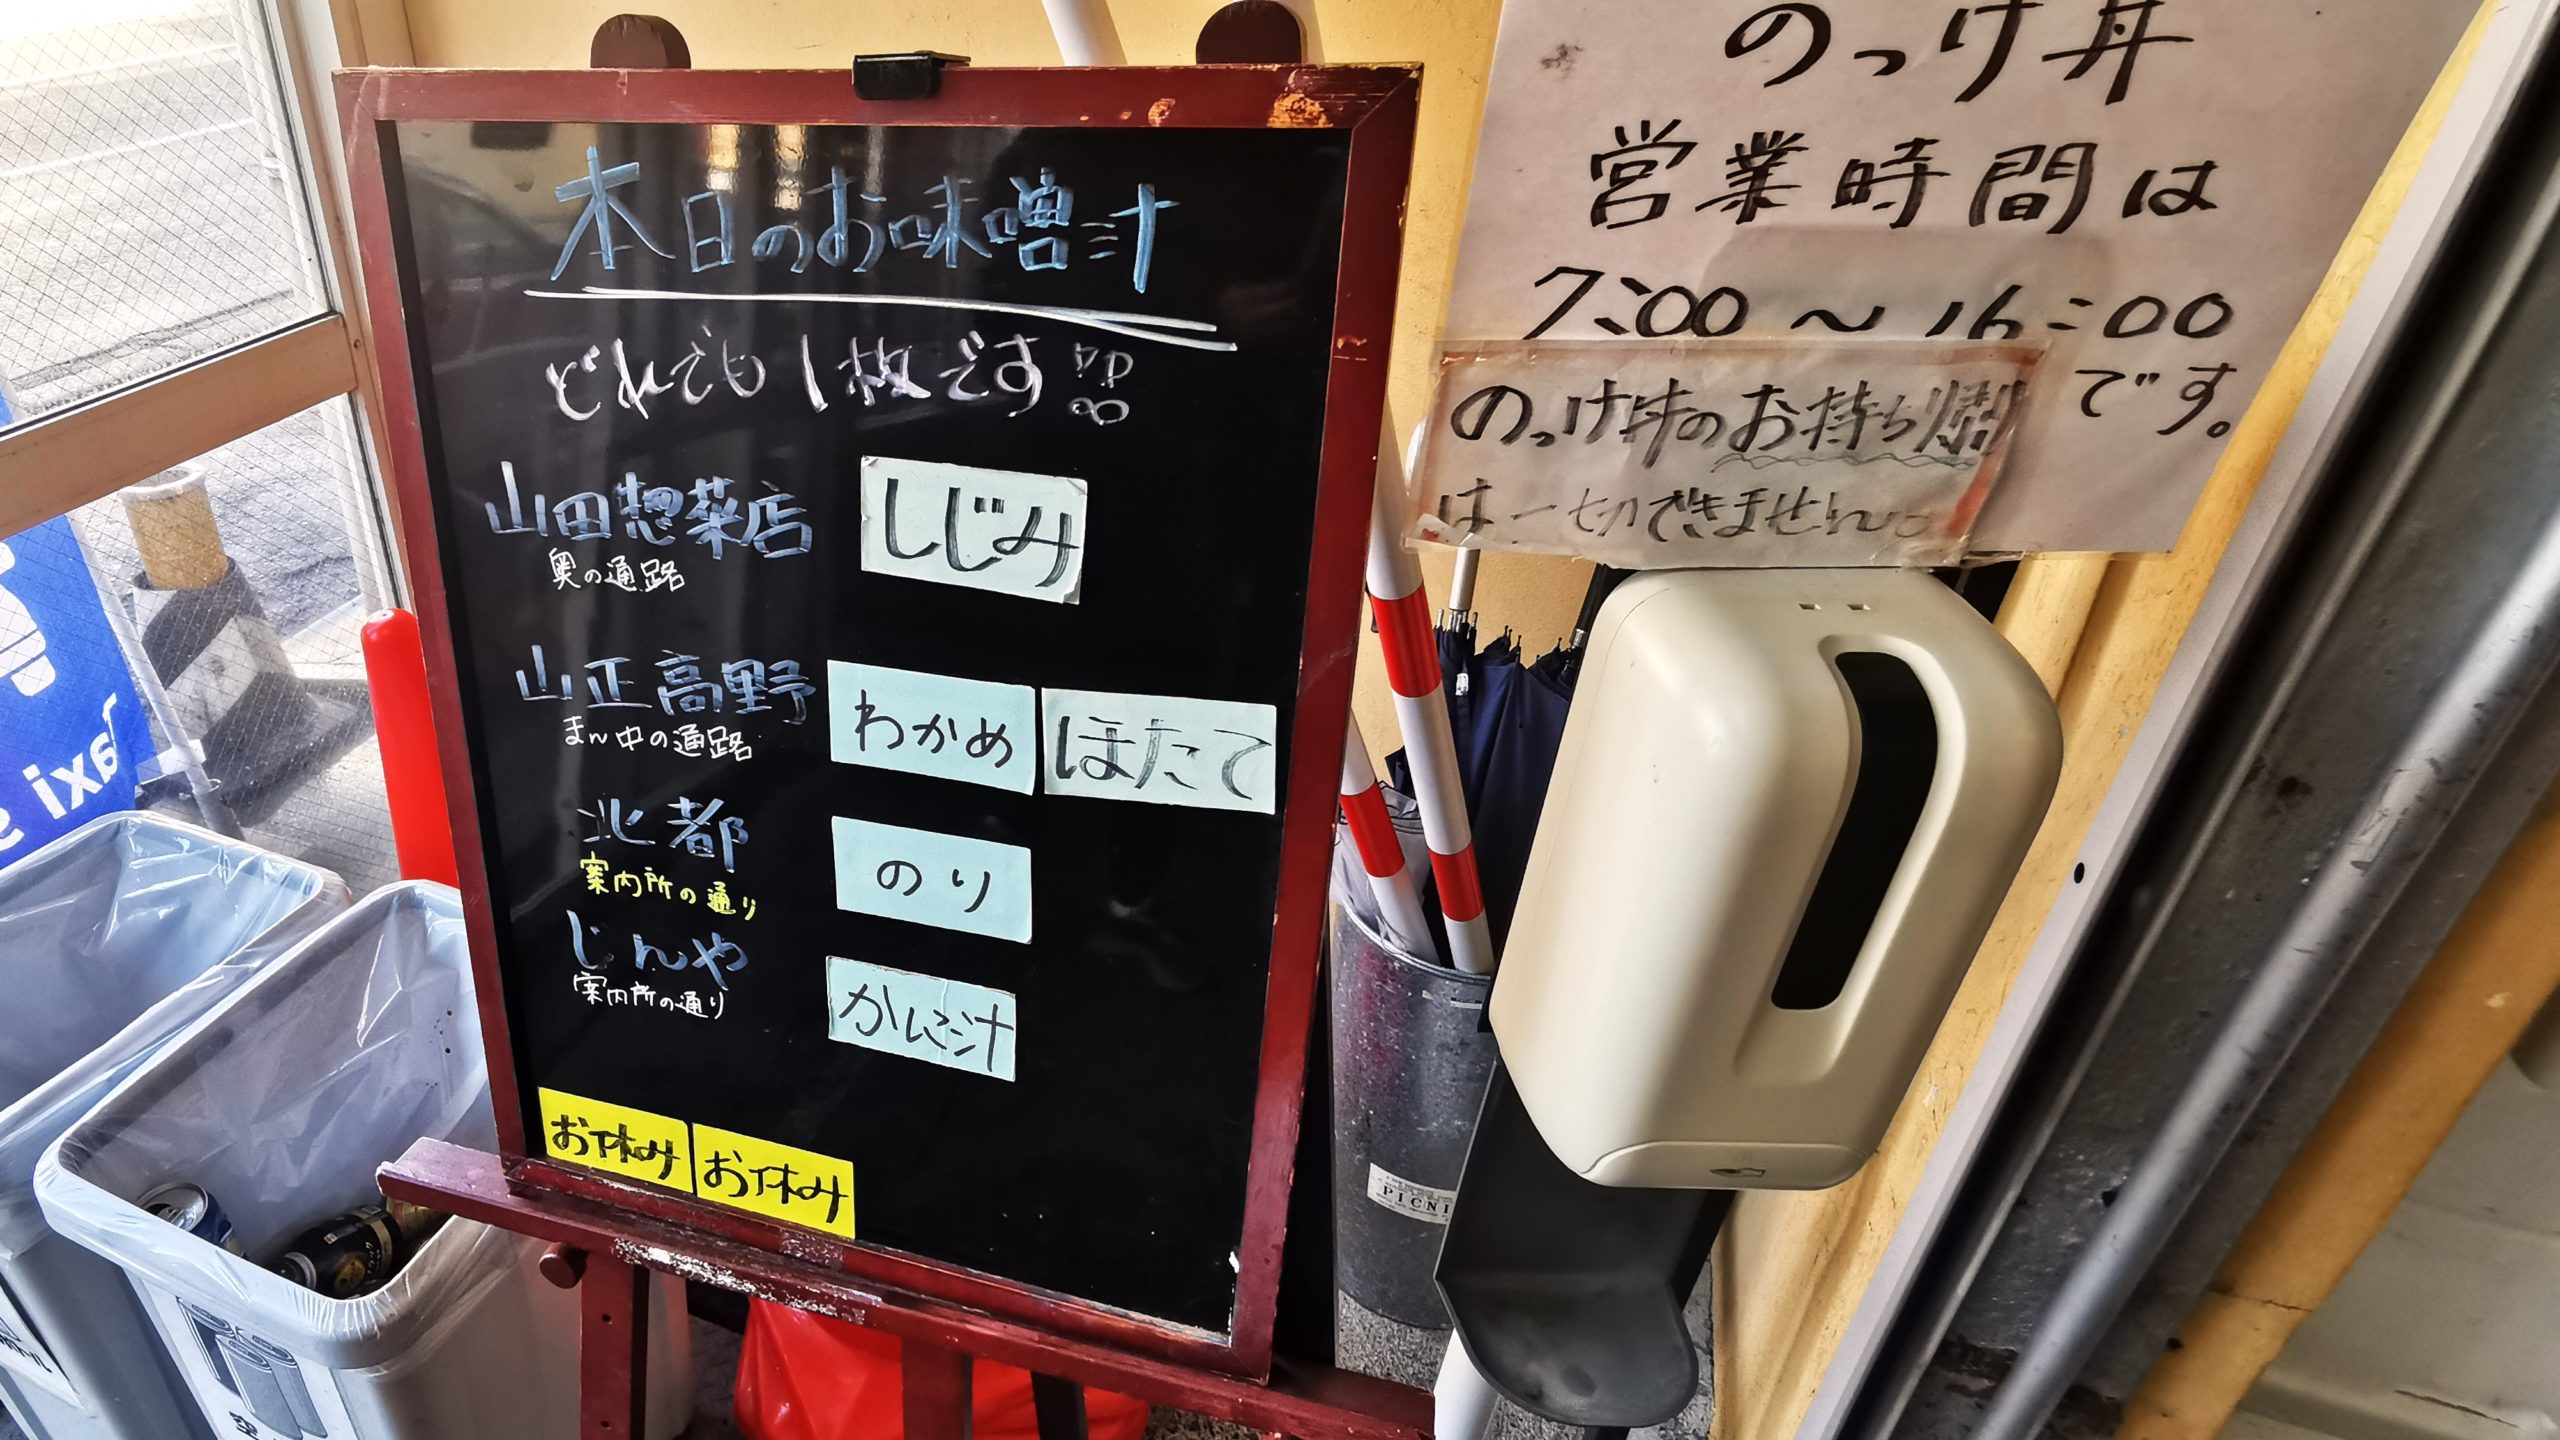 本日のお味噌汁
どれでも1枚です!!
山田惣菜店 しじみ
奥の通路
山正高野 わかめ ほたて
まん中の通路
北都 のり
案内所の通り
じんや かに汁
案内所の通り
お休み お休み
のっけ丼
営業時間は
7:00～16:00
です。
のっけ丼のお持ち
は一切できません。
Taxi
PICNI